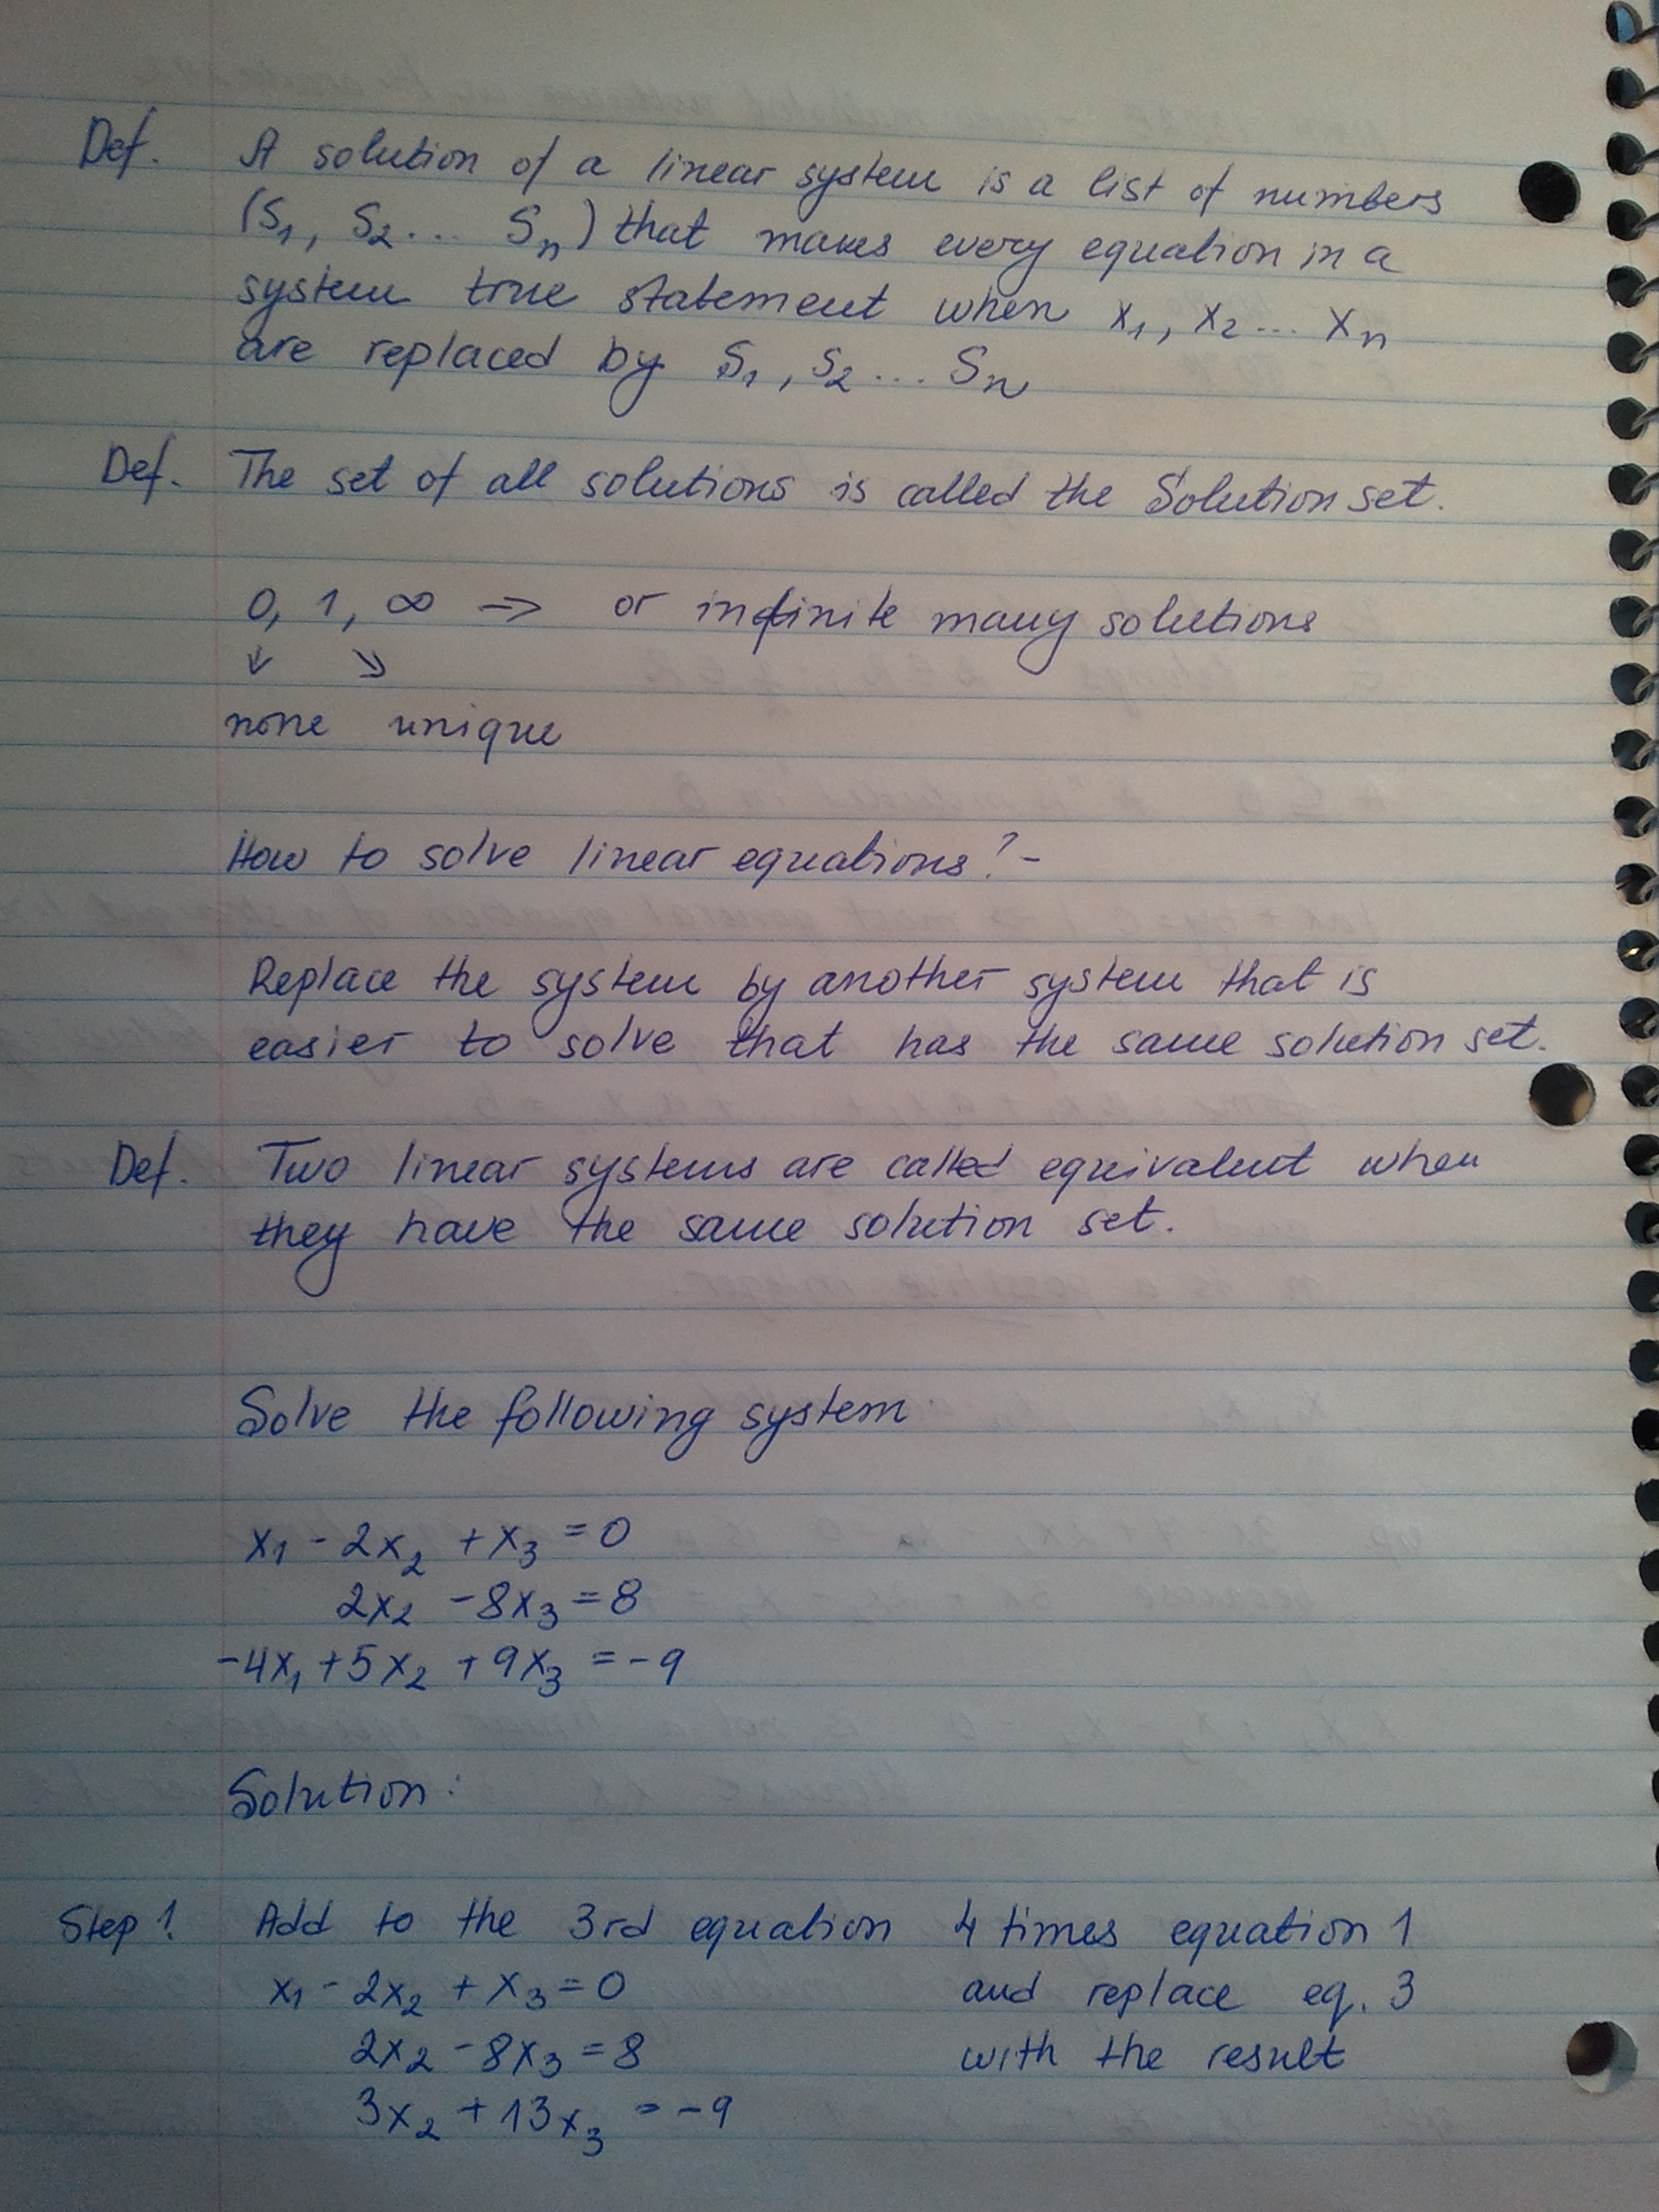 Def. A solution of a linear system is a list of numbers
(S₁, S₂... Sₙ) that makes every equation in a
system true statement when x₁, x₂... xₙ
are replaced by S₁, S₂... Sₙ
Def. The set of all solutions is called the Solution set.
0, 1, ∞ → or infinite many solutions
↓ ↘
none unique
How to solve linear equations? -
Replace the system by another system that is
easier to solve that has the same solution set.
Def. Two linear systems are called equivalent when
they have the same solution set.
Solve the following system
x₁ - 2x₂ + x₃ = 0
2x₂ - 8x₃ = 8
-4x₁ + 5x₂ + 9x₃ = -9
Solution:
Step 1. Add to the 3rd equation 4 times equation 1
x₁ - 2x₂ + x₃ = 0 and replace eq. 3
2x₂ - 8x₃ = 8 with the result
3x₂ + 13x₃ = -9